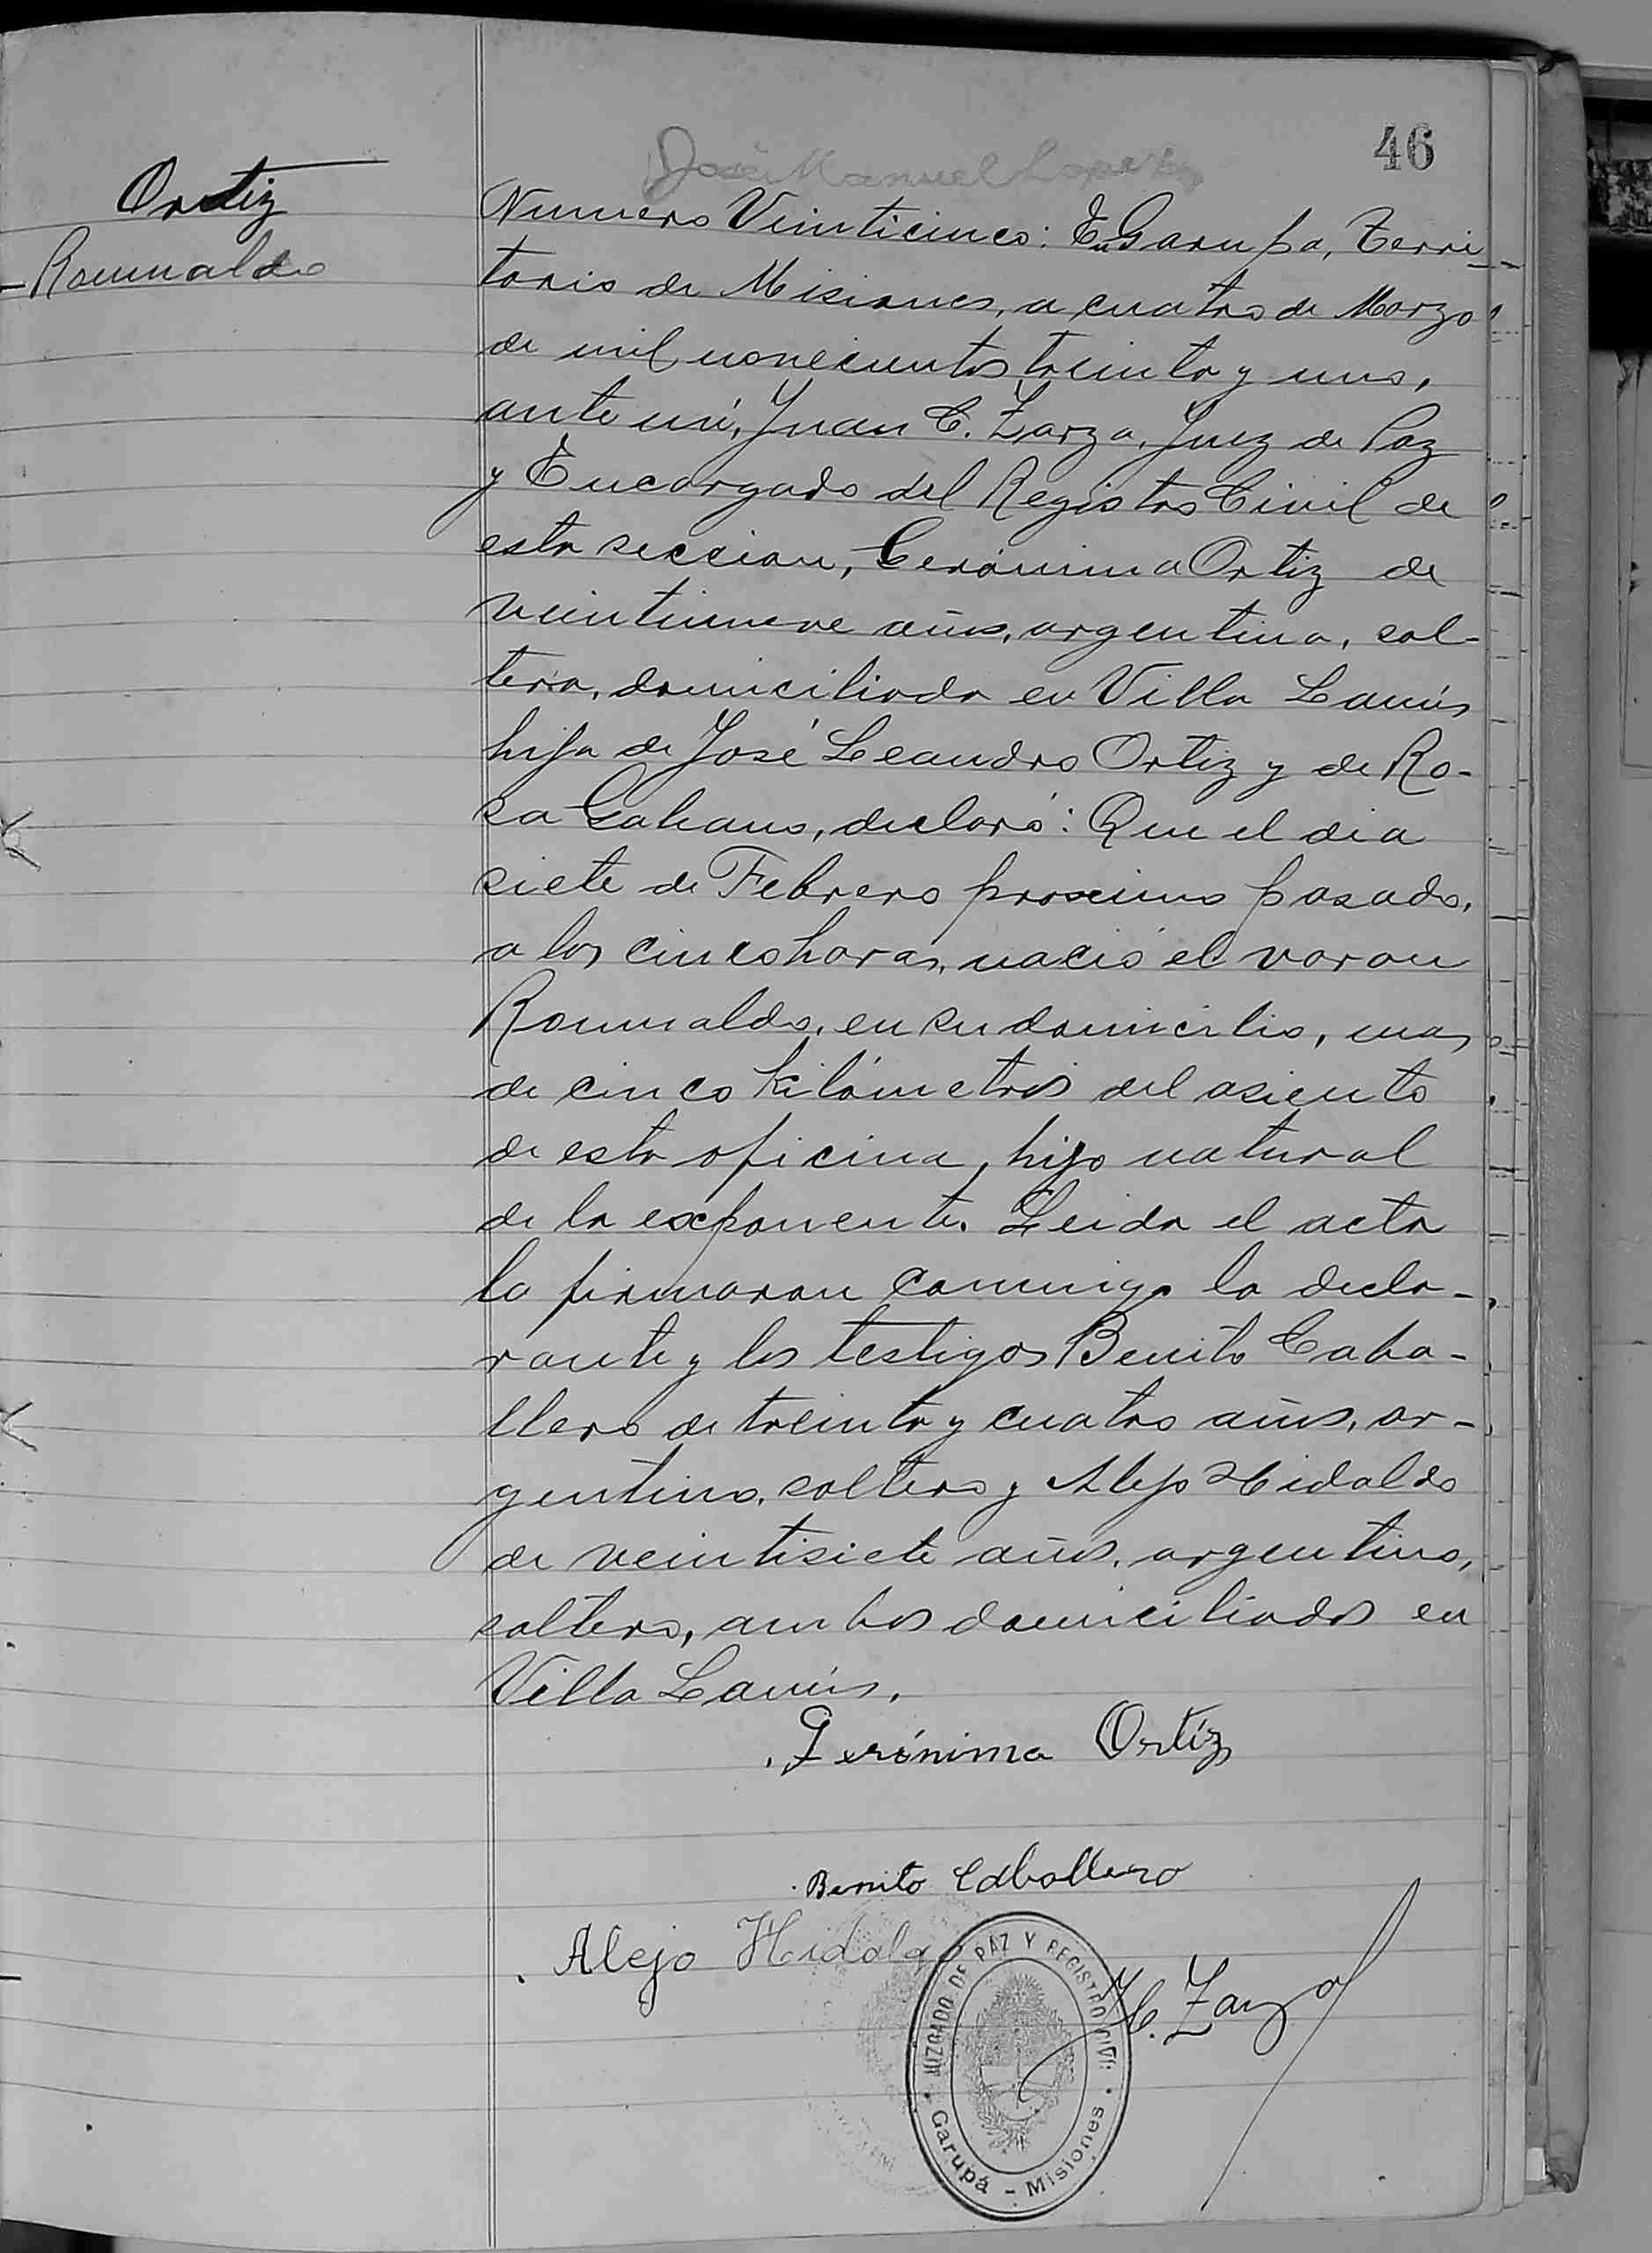 46
José Manuel Lopez
Ortiz
Romualdo
Numero Veinticinco: En Garupa, Terri-
torio de Misiones, a cuatro de Marzo
de mil novecientos treinta y uno,
ante mí, Juan C. Zarza, Juez de Paz
y Encargado del Registro Civil de
esta seccion, Gerónima Ortiz de
veintinueve años, argentina, sol-
tera, domiciliada en Villa Lanús
hija de José Leandro Ortiz y de Ro-
sa Galeano, declaró: Que el dia
siete de Febrero proximo pasado,
a las cinco horas, nació el varon
Romualdo, en su domicilio, mas
de cinco kilómetros del asiento
de esta oficina, hijo natural
de la exponente. Leida el acta
la firmaron conmigo la decla-
rante y los testigos Benito Caba-
llero de treinta y cuatro años, ar-
gentino, soltero y Alejo Hidaldo
de veintisiete años, argentino,
soltero, ambos domiciliados en
Villa Lanús.
Gerónima Ortíz
Benito Caballero
Alejo Hidalgo
J. C. Zarza
JUZGADO DE PAZ Y REGISTRO CIVIL
Garupá - Misiones